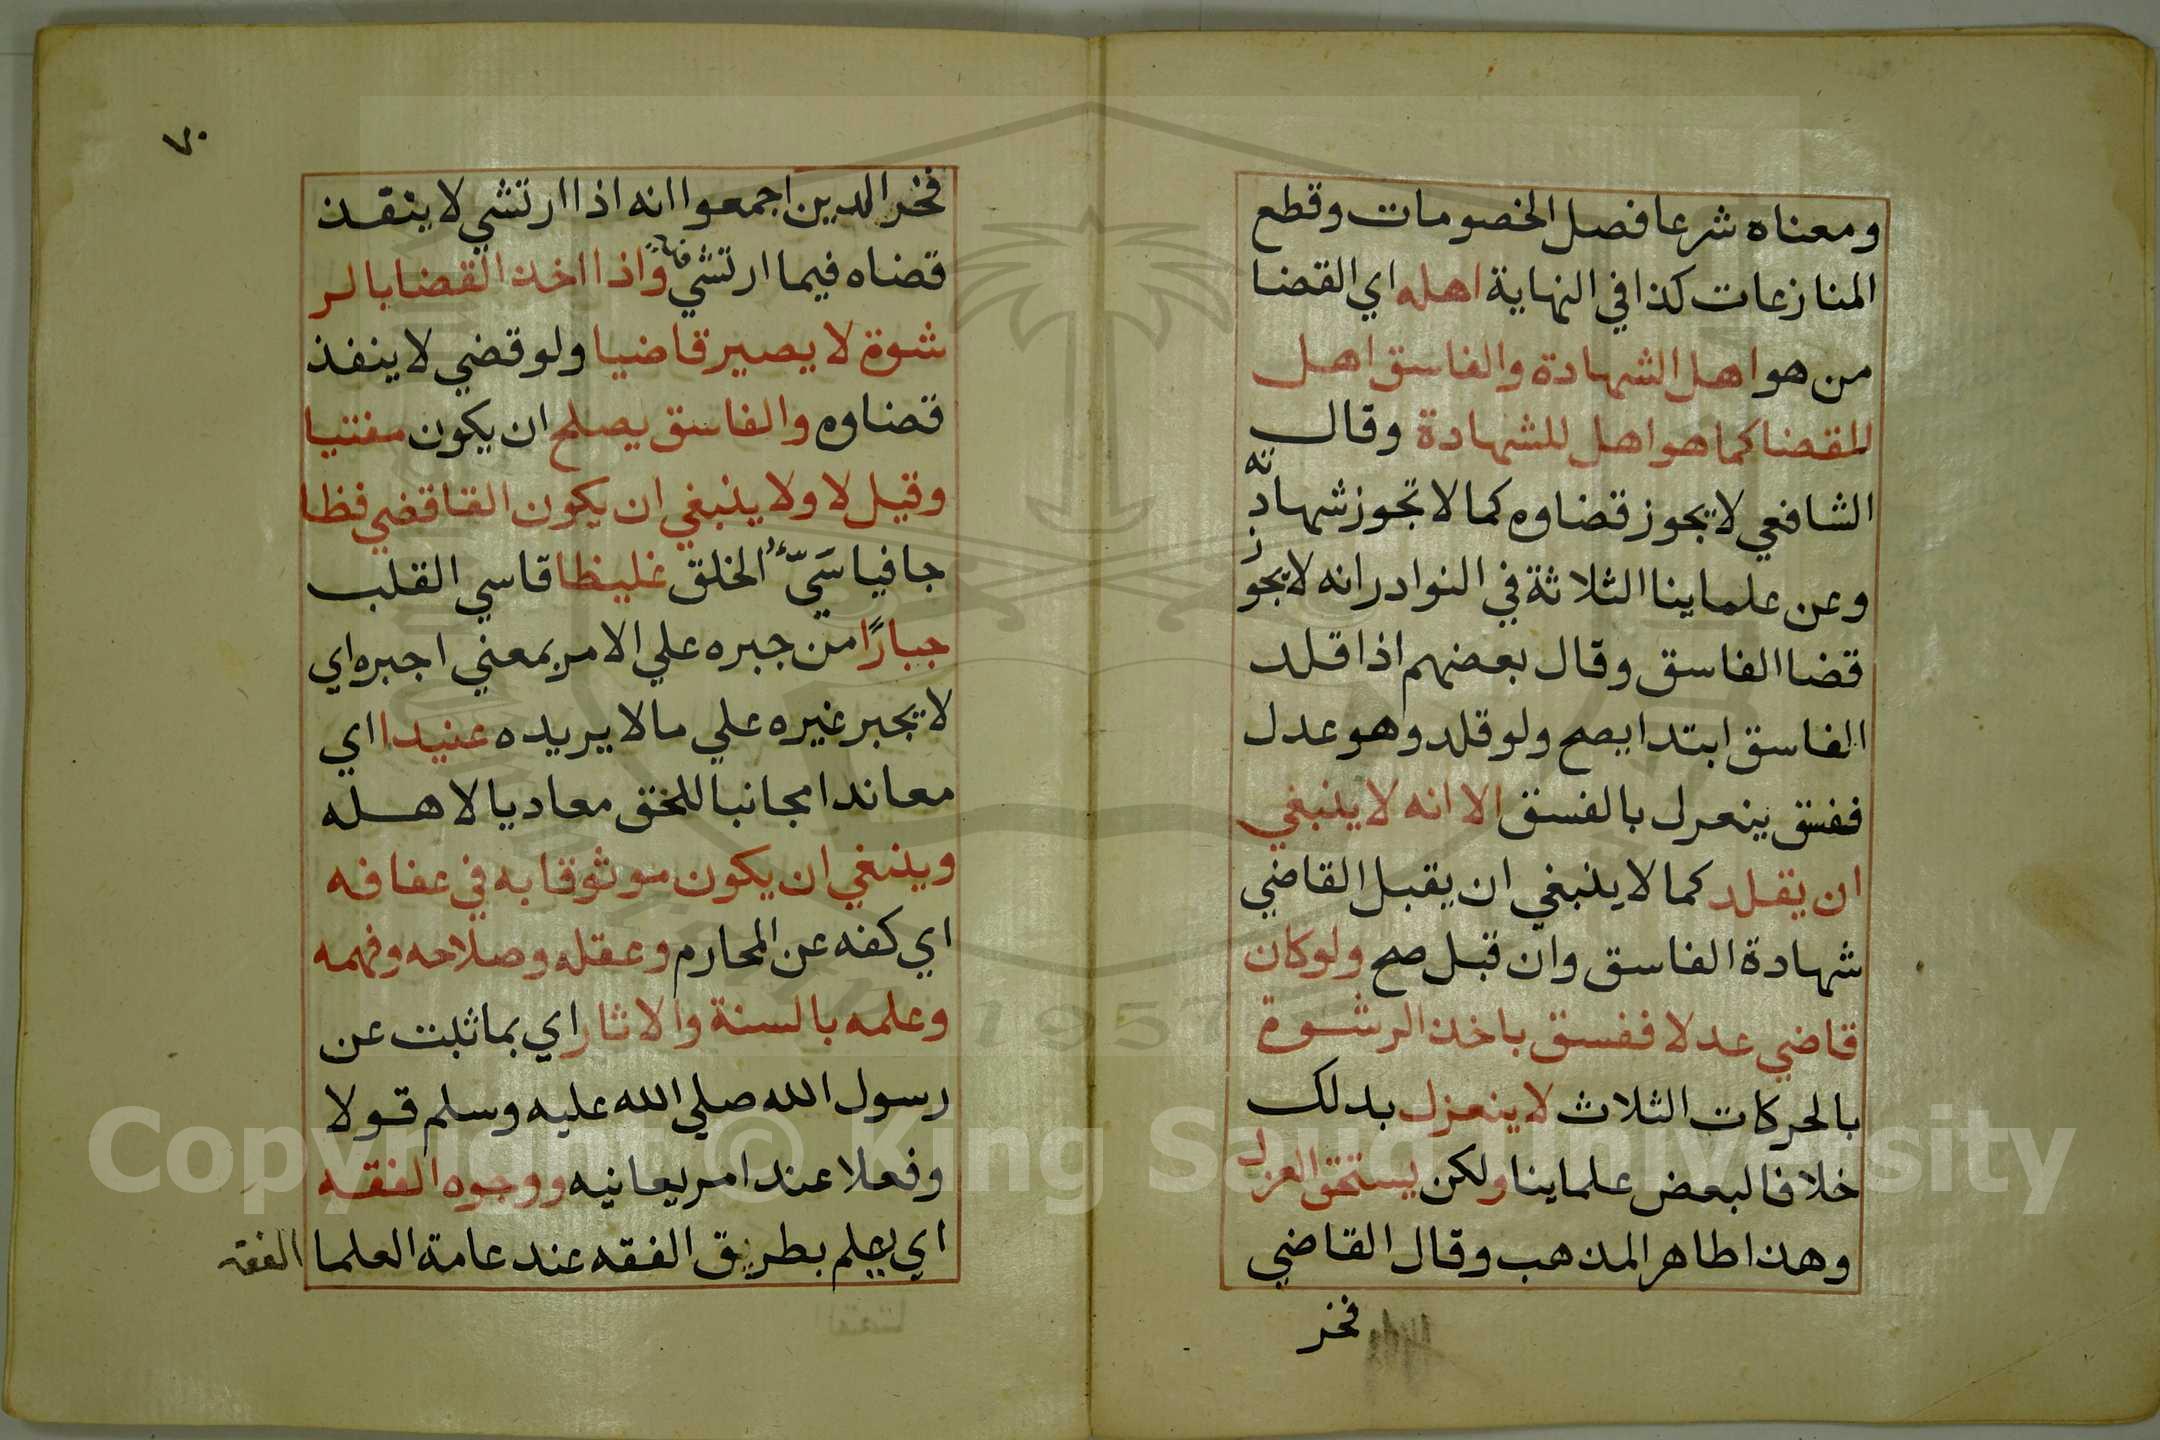 ومعناه شرعا فصل الخصومات وقطع
المنازعات كذا في النهاية اهله اي القضا
من هو اهل الشهادة والفاسق اهل
للقضا كما هو اهل للشهادة وقال
الشافعي لا يجوز قضاوه كما لا تجوز شهادته
وعن علماينا الثلاثة في النوادر انه لا يجوز
قضا الفاسق وقال بعضهم اذا قلد
الفاسق ابتدا يصح ولو قلد وهو عدل
ففسق ينعزل بالفسق الا انه لا ينبغي
ان يقلد كما لا ينبغي ان يقبل القاضي
شهادة الفاسق وان قبل صح ولو كان
قاضي عدلا ففسق باخذ الرشوة
بالحركات الثلاث لا ينعزل بدلك
خلافا لبعض علماينا ولكن يستحق العزل
وهذا طاهر المذهب وقال القاضي
فخر
٧٠
فخر الدين اجمعوا انه اذا ارتشي لا ينقذ
قضاه فيما ارتشي واذا اخذ القضا بالر
شوة لا يصير قاضيا ولو قضي لا ينفذ
قضاوه والفاسق يصلح ان يكون مفتيا
وقيل لا ولا ينبغي ان يكون القاقضي فظا
جافيا سَيّء الخلق غليظا قاسي القلب
جبارًا من جبره علي الامر بمعني اجبره اي
لا يجبر غيره علي ما لا يريده عنيدا اي
معاندا مجانبا للحق معاديا لاهله
وينبغي ان يكون موثوقا به في عفافه
اي كفه عن المحارم وعقله وصلاحه وفهمه
وعلمه بالسنة والاثار اي بما ثبت عن
رسول الله صلي الله عليه وسلم قولا
وفعلا عند امر يعانيه ووجوه الفقه
اي يعلم بطريق الفقه عند عامة العلما
الفقه
Copyright © King Saud University
1957